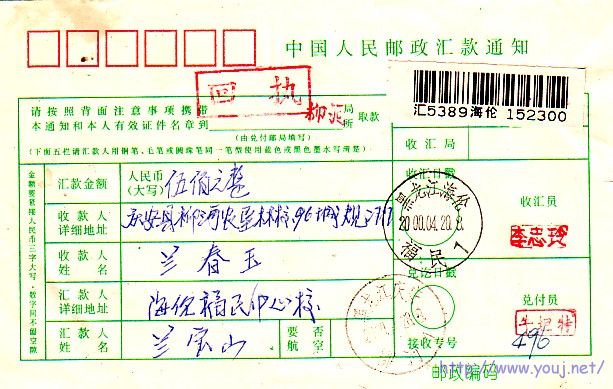 中国人民邮政汇款通知
回执
汇5389海伦 152300
请按照背面注意事项携带
本通知和本人有效证件名章到
柳河
局
所
取款
(由兑付邮局填写)
(下面五栏请汇款人用钢笔、毛笔或圆珠笔同一笔型使用蓝色或黑色墨水写清楚)
收汇局
金额要紧接人民币三字大写,数字间不留空隙
汇款金额
人民币
(大写)
伍佰元整
收汇日戳
收汇员
收款人
详细地址
庆安县柳河农垦林校96
黑龙江海伦
2000.04.20.8
福民1
李志玲
收款人
姓名
兰春玉
兑讫日戳
汇款人
详细地址
海伦福民中心校
兑付员
汇款人
姓名
兰宝山
要否
航空
接收专号
496
邮政编码
http://www.youj.net/